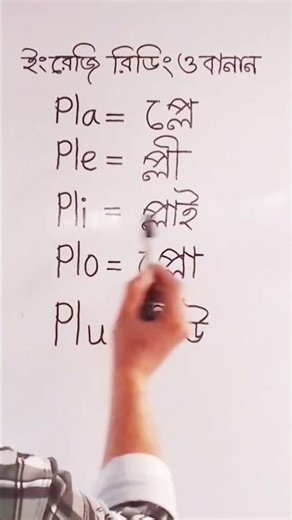 ইংরেজি রিডিং ও বানান
Pla = প্লে
Ple = প্লী
Pli = প্লাই
Plo = প্লো
Plu